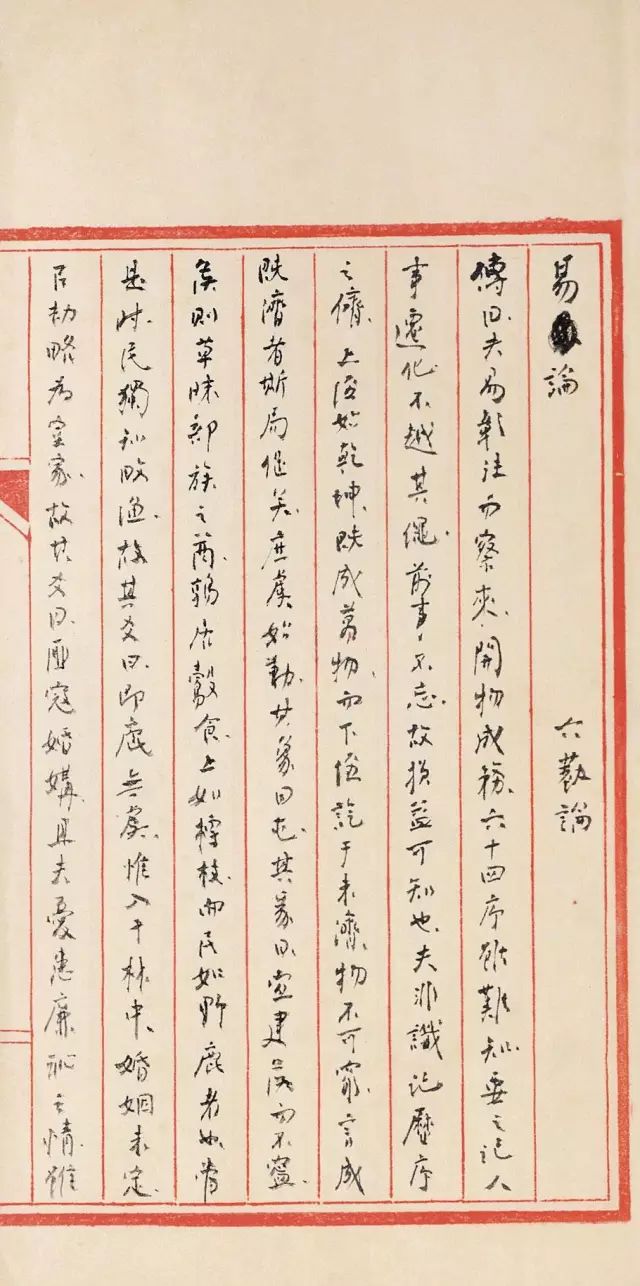 易論　六蓺論
傳曰夫易彰往而察來、開物成務、六十四序雖難知、要之記人
事遷化、不越其繩、前事不忘、故損益可知也、夫非讖記歷序
之儕、上經始乾坤、既成萬物、而下經訖于未濟、物不可窮、言成
既濟者、斯局促矣、庶虞始動、其象曰屯、其彖曰、宜建侯而不寧、
侯則草昧部族之酋、鶉居鷇食、上如標枝、而民如野鹿者也、當
是時、民獨知畋漁、故其爻曰、即鹿無虞、惟入于林中、婚姻未定、
以劫略為室家、故其爻曰、匪寇婚媾、且夫憂患廉恥之情、雖